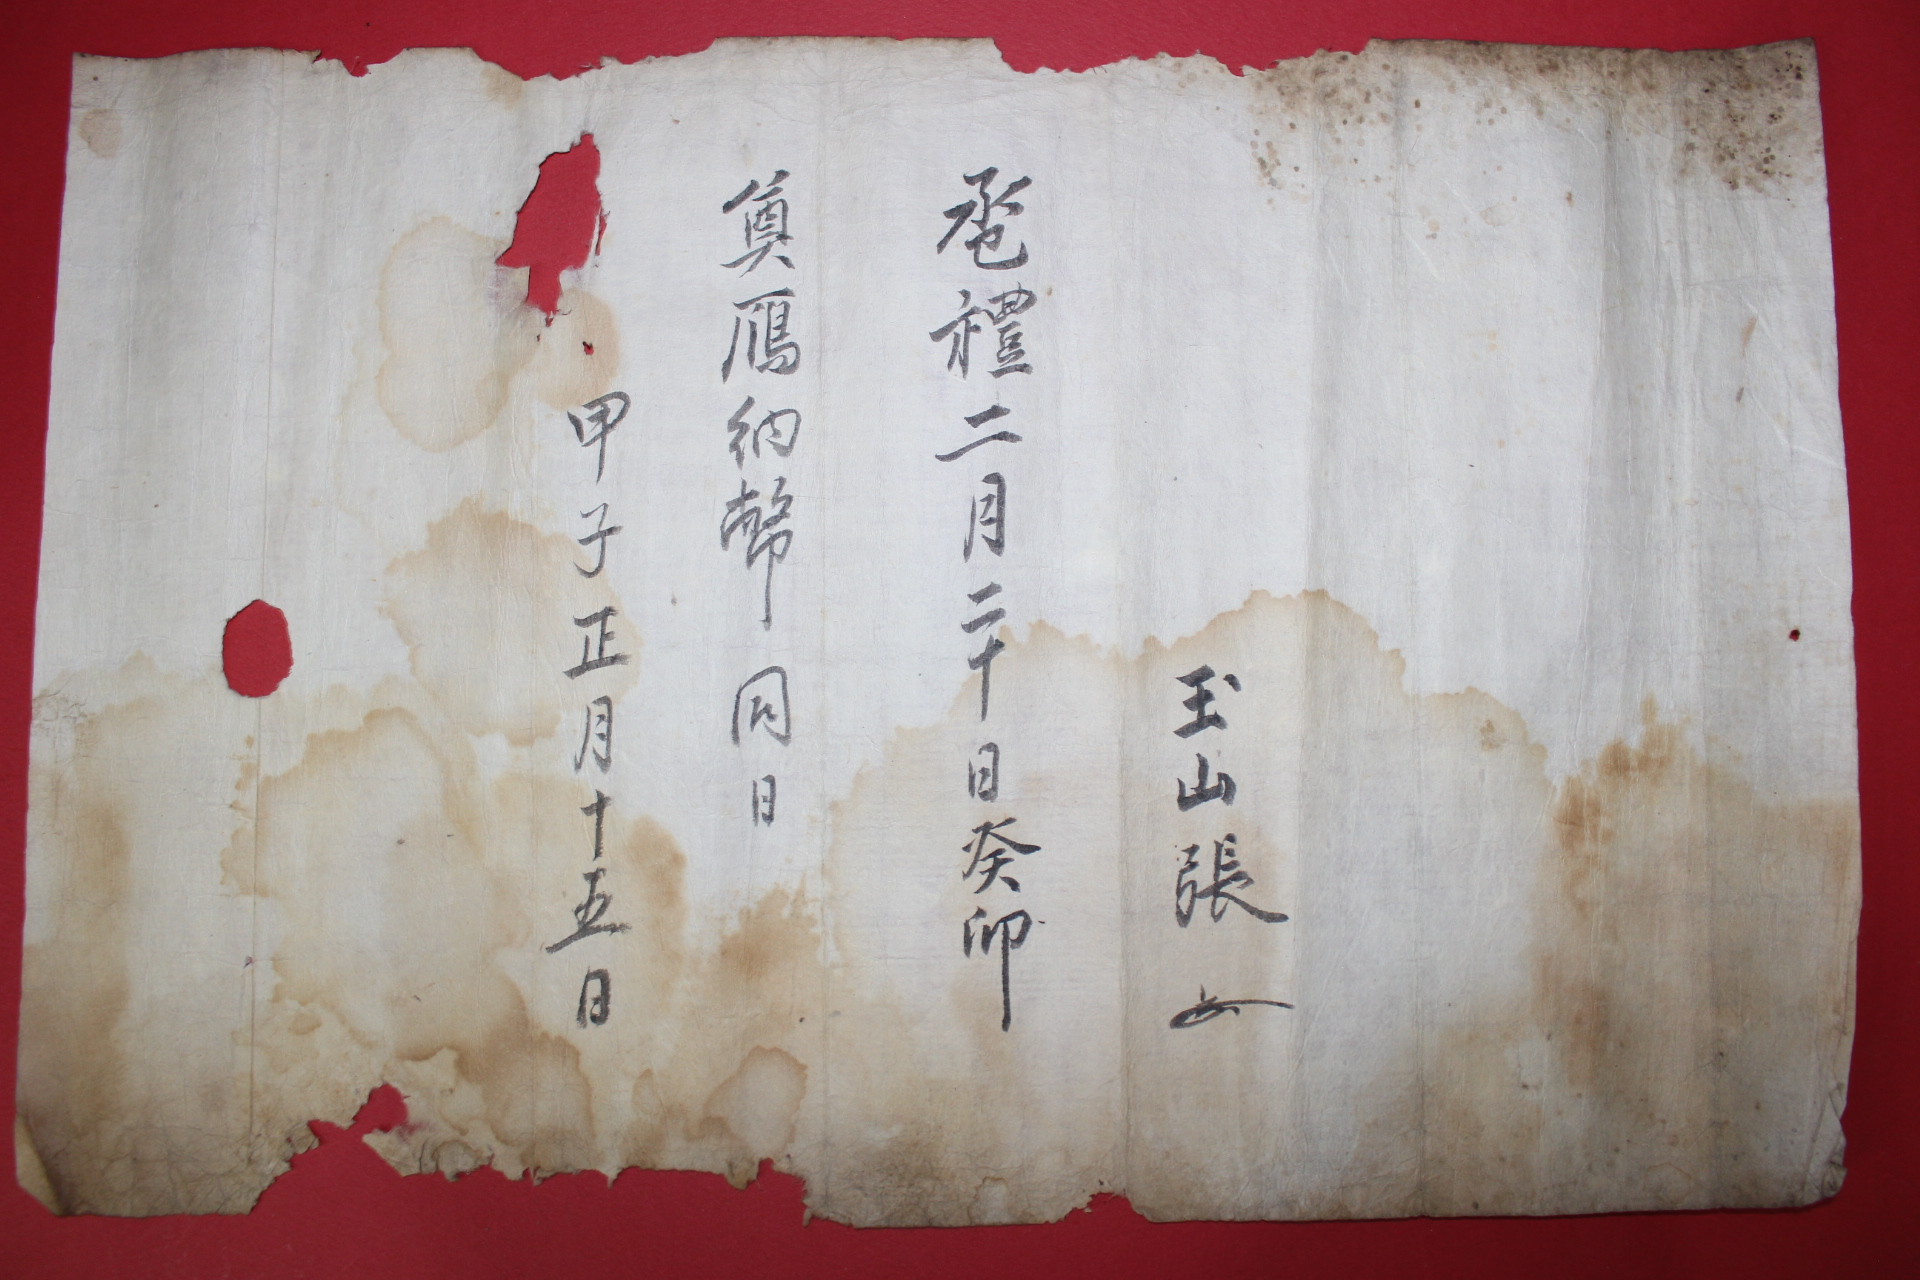 玉山張
巹禮二月二十日癸卯
奠鴈納幣 同日
甲子正月十五日